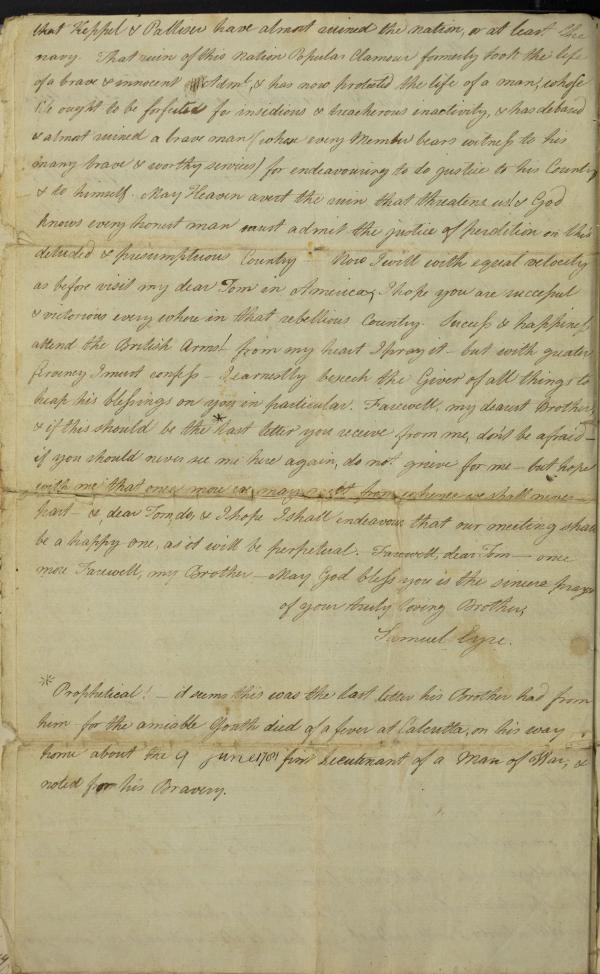 that Keppel & Palliser have almost ruined the nation, or at least the
navy. That ruin of this Nation Popular Clamour formerly took the life
of a brave & innocent Adml, & has now protected the life of a man, whose
life ought to be forfeited for insidious & treacherous inactivity, & has debased
& almost ruined a brave man (whose every Member bears witness to his
many brave & worthy services) for endeavouring to do justice to his Country
& to himself. May Heaven avert the ruin that threatens us! & God
knows every honest man must admit the justice of perdition on this
deluded & presumptuous Country — Now I will with equal velocity
as before visit my dear Tom in America, I hope you are succesful
& victorious every where in that rebellious Country. Success & happiness
attend the British Arms! from my heart I pray it – but with greater
fervency I must confess – I earnestly beseech the Giver of all things to
heap his blessings on you in particular. Farewell, my dearest Brother,
& if this should be the *last letter you receive from me, don't be afraid –
if you should never see me here again, do not grieve for me – but hope
with me that once more we may meet from whence we shall never
part – do, dear Tom, do, & I hope I shall endeavour that our meeting shall
be a happy one, as it will be perpetual. Farewell, dear Tom – once
more Farewell, my Brother – May God bless you is the sincere prayer
of your truly loving Brother,
Samuel Eyre.
* Prophetical! – it seems this was the last letter his Brother had from
him – for the amiable Youth died of a fever at Calcutta, on his way
home about the 9 June 1781 first Lieutenant of a Man of War, &
noted for his Bravery.